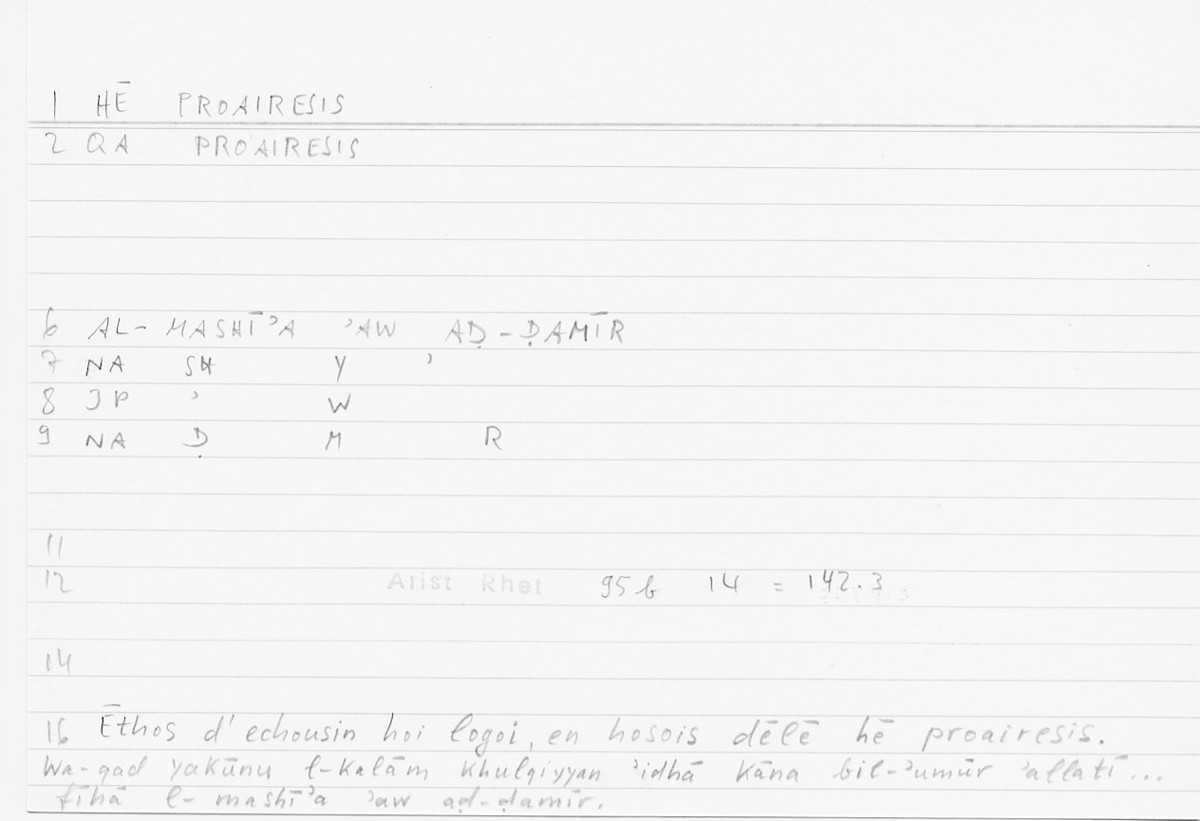 1 HĒ PROAIRESIS
2 QA PROAIRESIS
6 AL- MASHĪʾA ʾAW AḌ-ḌAMĪR
7 NA SH Y ʾ
8 JP ʾ W
9 NA Ḍ M R
11
12 Arist Rhet 95b 14 = 142.3
14
16 Ēthos d'echousin hoi logoi, en hosois dēlē hē proairesis.
Wa-qad yakūnu l-kalām khulqiyyan ʾidhā kāna bil-ʾumūr ʾallatī...
fīhā l- mashīʾa ʾaw aḍ-ḍamīr.